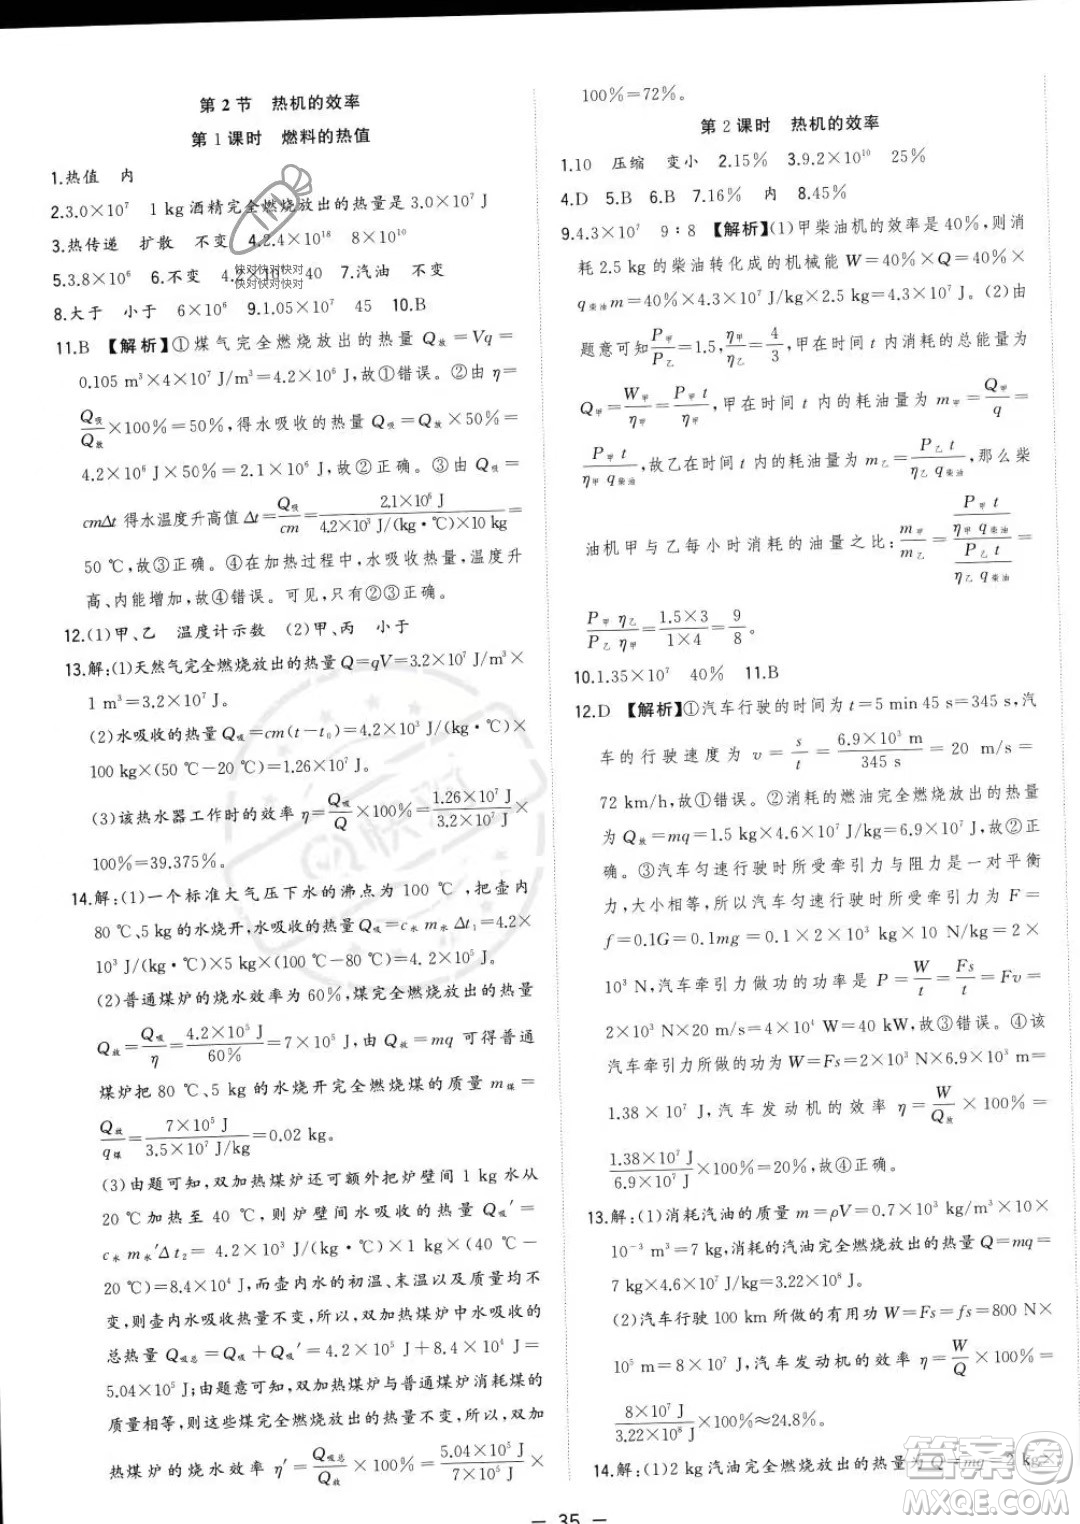 第2节 热机的效率
第1课时 燃料的热值
1.热值 内
2.3.0×10⁷ 1 kg酒精完全燃烧放出的热量是3.0×10⁷ J
3.热传递 扩散 不变 4.2.4×10¹⁸ 8×10¹⁰
5.3.8×10⁶ 6.不变 40 7.汽油 不变
8.大于 小于 6×10⁶ 9.1.05×10⁷ 45 10.B
11.B 【解析】①煤气完全燃烧放出的热量 Q放=Vq=
0.105 m³×4×10⁷ J/m³=4.2×10⁶ J,故①错误。②由 η=
Q吸/Q放×100%=50%,得水吸收的热量 Q吸=Q放×50%=
4.2×10⁶ J×50%=2.1×10⁶ J,故②正确。③由 Q吸=
cmΔt 得水温度升高值 Δt=Q吸/cm=2.1×10⁶ J/4.2×10³ J/(kg·℃)×10 kg=
50 ℃,故③正确。④在加热过程中,水吸收热量,温度升
高、内能增加,故④错误。可见,只有②③正确。
12.(1)甲、乙 温度计示数 (2)甲、丙 小于
13.解:(1)天然气完全燃烧放出的热量 Q=qV=3.2×10⁷ J/m³×
1 m³=3.2×10⁷ J。
(2)水吸收的热量 Q吸=cm(t-t₀)=4.2×10³ J/(kg·℃)×
100 kg×(50 ℃-20 ℃)=1.26×10⁷ J。
(3)该热水器工作时的效率 η=Q吸/Q×100%=1.26×10⁷ J/3.2×10⁷ J×
100%=39.375%。
14.解:(1)一个标准大气压下水的沸点为 100 ℃,把壶内
80 ℃、5 kg 的水烧开,水吸收的热量 Q吸=c水 m水 Δt₁=4.2×
10³ J/(kg·℃)×5 kg×(100 ℃-80 ℃)=4.2×10⁵ J。
(2)普通煤炉的烧水效率为 60%,煤完全燃烧放出的热量
Q放=Q吸/η=4.2×10⁵ J/60%=7×10⁵ J,由 Q放=mq 可得普通
煤炉把 80 ℃、5 kg 的水烧开完全燃烧煤的质量 m煤=
Q放/q煤=7×10⁵ J/3.5×10⁷ J/kg=0.02 kg。
(3)由题可知,双加热煤炉还可额外把炉壁间 1 kg 水从
20 ℃ 加热至 40 ℃,则炉壁间水吸收的热量 Q吸′=
c水 m水′Δt₂=4.2×10³ J/(kg·℃)×1 kg×(40 ℃-
20 ℃)=8.4×10⁴ J,而壶内水的初温、末温以及质量均不
变,则壶内水吸收的热量不变,所以,双加热煤炉中水吸收的
总热量 Q吸总=Q吸+Q吸′=4.2×10⁵ J+8.4×10⁴ J=
5.04×10⁵ J;由题意可知,双加热煤炉与普通煤炉消耗煤的
质量相等,则这些煤完全燃烧放出的热量不变,所以,双加
热煤炉的烧水效率 η′=Q吸总/Q放×100%=5.04×10⁵ J/7×10⁵ J×
100%=72%。
第2课时 热机的效率
1.10 压缩 变小 2.15% 3.9.2×10¹⁰ 25%
4.D 5.B 6.B 7.16% 内 8.45%
9.4.3×10⁷ 9∶8 【解析】(1)甲柴油机的效率是40%,则消
耗 2.5 kg 的柴油转化成的机械能 W=40%×Q=40%×
q柴油m=40%×4.3×10⁷ J/kg×2.5 kg=4.3×10⁷ J。(2)由
题意可知 P甲/P乙=1.5,η甲/η乙=4/3,甲在时间 t 内消耗的总能量为
Q甲=W甲/η甲=P甲 t/η甲,甲在时间 t 内的耗油量为 m甲=Q甲/q=
P甲 t/η甲 q柴油,故乙在时间 t 内的耗油量为 m乙=P乙 t/η乙 q柴油,那么柴
油机甲与乙每小时消耗的油量之比:m甲/m乙=(P甲 t/η甲 q柴油)/(P乙 t/η乙 q柴油)=
P甲 η乙/P乙 η甲=1.5×3/1×4=9/8。
10.1.35×10⁷ 40% 11.B
12.D 【解析】①汽车行驶的时间为 t=5 min 45 s=345 s,汽
车的行驶速度为 v=s/t=6.9×10³ m/345 s=20 m/s=
72 km/h,故①错误。②消耗的燃油完全燃烧放出的热量
为 Q放=mq=1.5 kg×4.6×10⁷ J/kg=6.9×10⁷ J,故②正
确。③汽车匀速行驶时所受牵引力与阻力是一对平衡
力,大小相等,所以汽车匀速行驶时所受牵引力为 F=
f=0.1G=0.1mg=0.1×2×10³ kg×10 N/kg=2×
10³ N,汽车牵引力做功的功率是 P=W/t=Fs/t=Fv=
2×10³ N×20 m/s=4×10⁴ W=40 kW,故③错误。④该
汽车牵引力所做的功为 W=Fs=2×10³ N×6.9×10³ m=
1.38×10⁷ J,汽车发动机的效率 η=W/Q放×100%=
1.38×10⁷ J/6.9×10⁷ J×100%=20%,故④正确。
13.解:(1)消耗汽油的质量 m=ρV=0.7×10³ kg/m³×10×
10⁻³ m³=7 kg,消耗的汽油完全燃烧放出的热量 Q=mq=
7 kg×4.6×10⁷ J/kg=3.22×10⁸ J。
(2)汽车行驶 100 km 所做的有用功 W=Fs=fs=800 N×
10⁵ m=8×10⁷ J,汽车发动机的效率 η=W/Q×100%=
8×10⁷ J/3.22×10⁸ J×100%≈24.8%。
14.解:(1)2 kg 汽油完全燃烧放出的热量为 Q=mq=2 kg×
— 35 —
快对快对快对
快对快对快对
答案圈
MXQE.COM